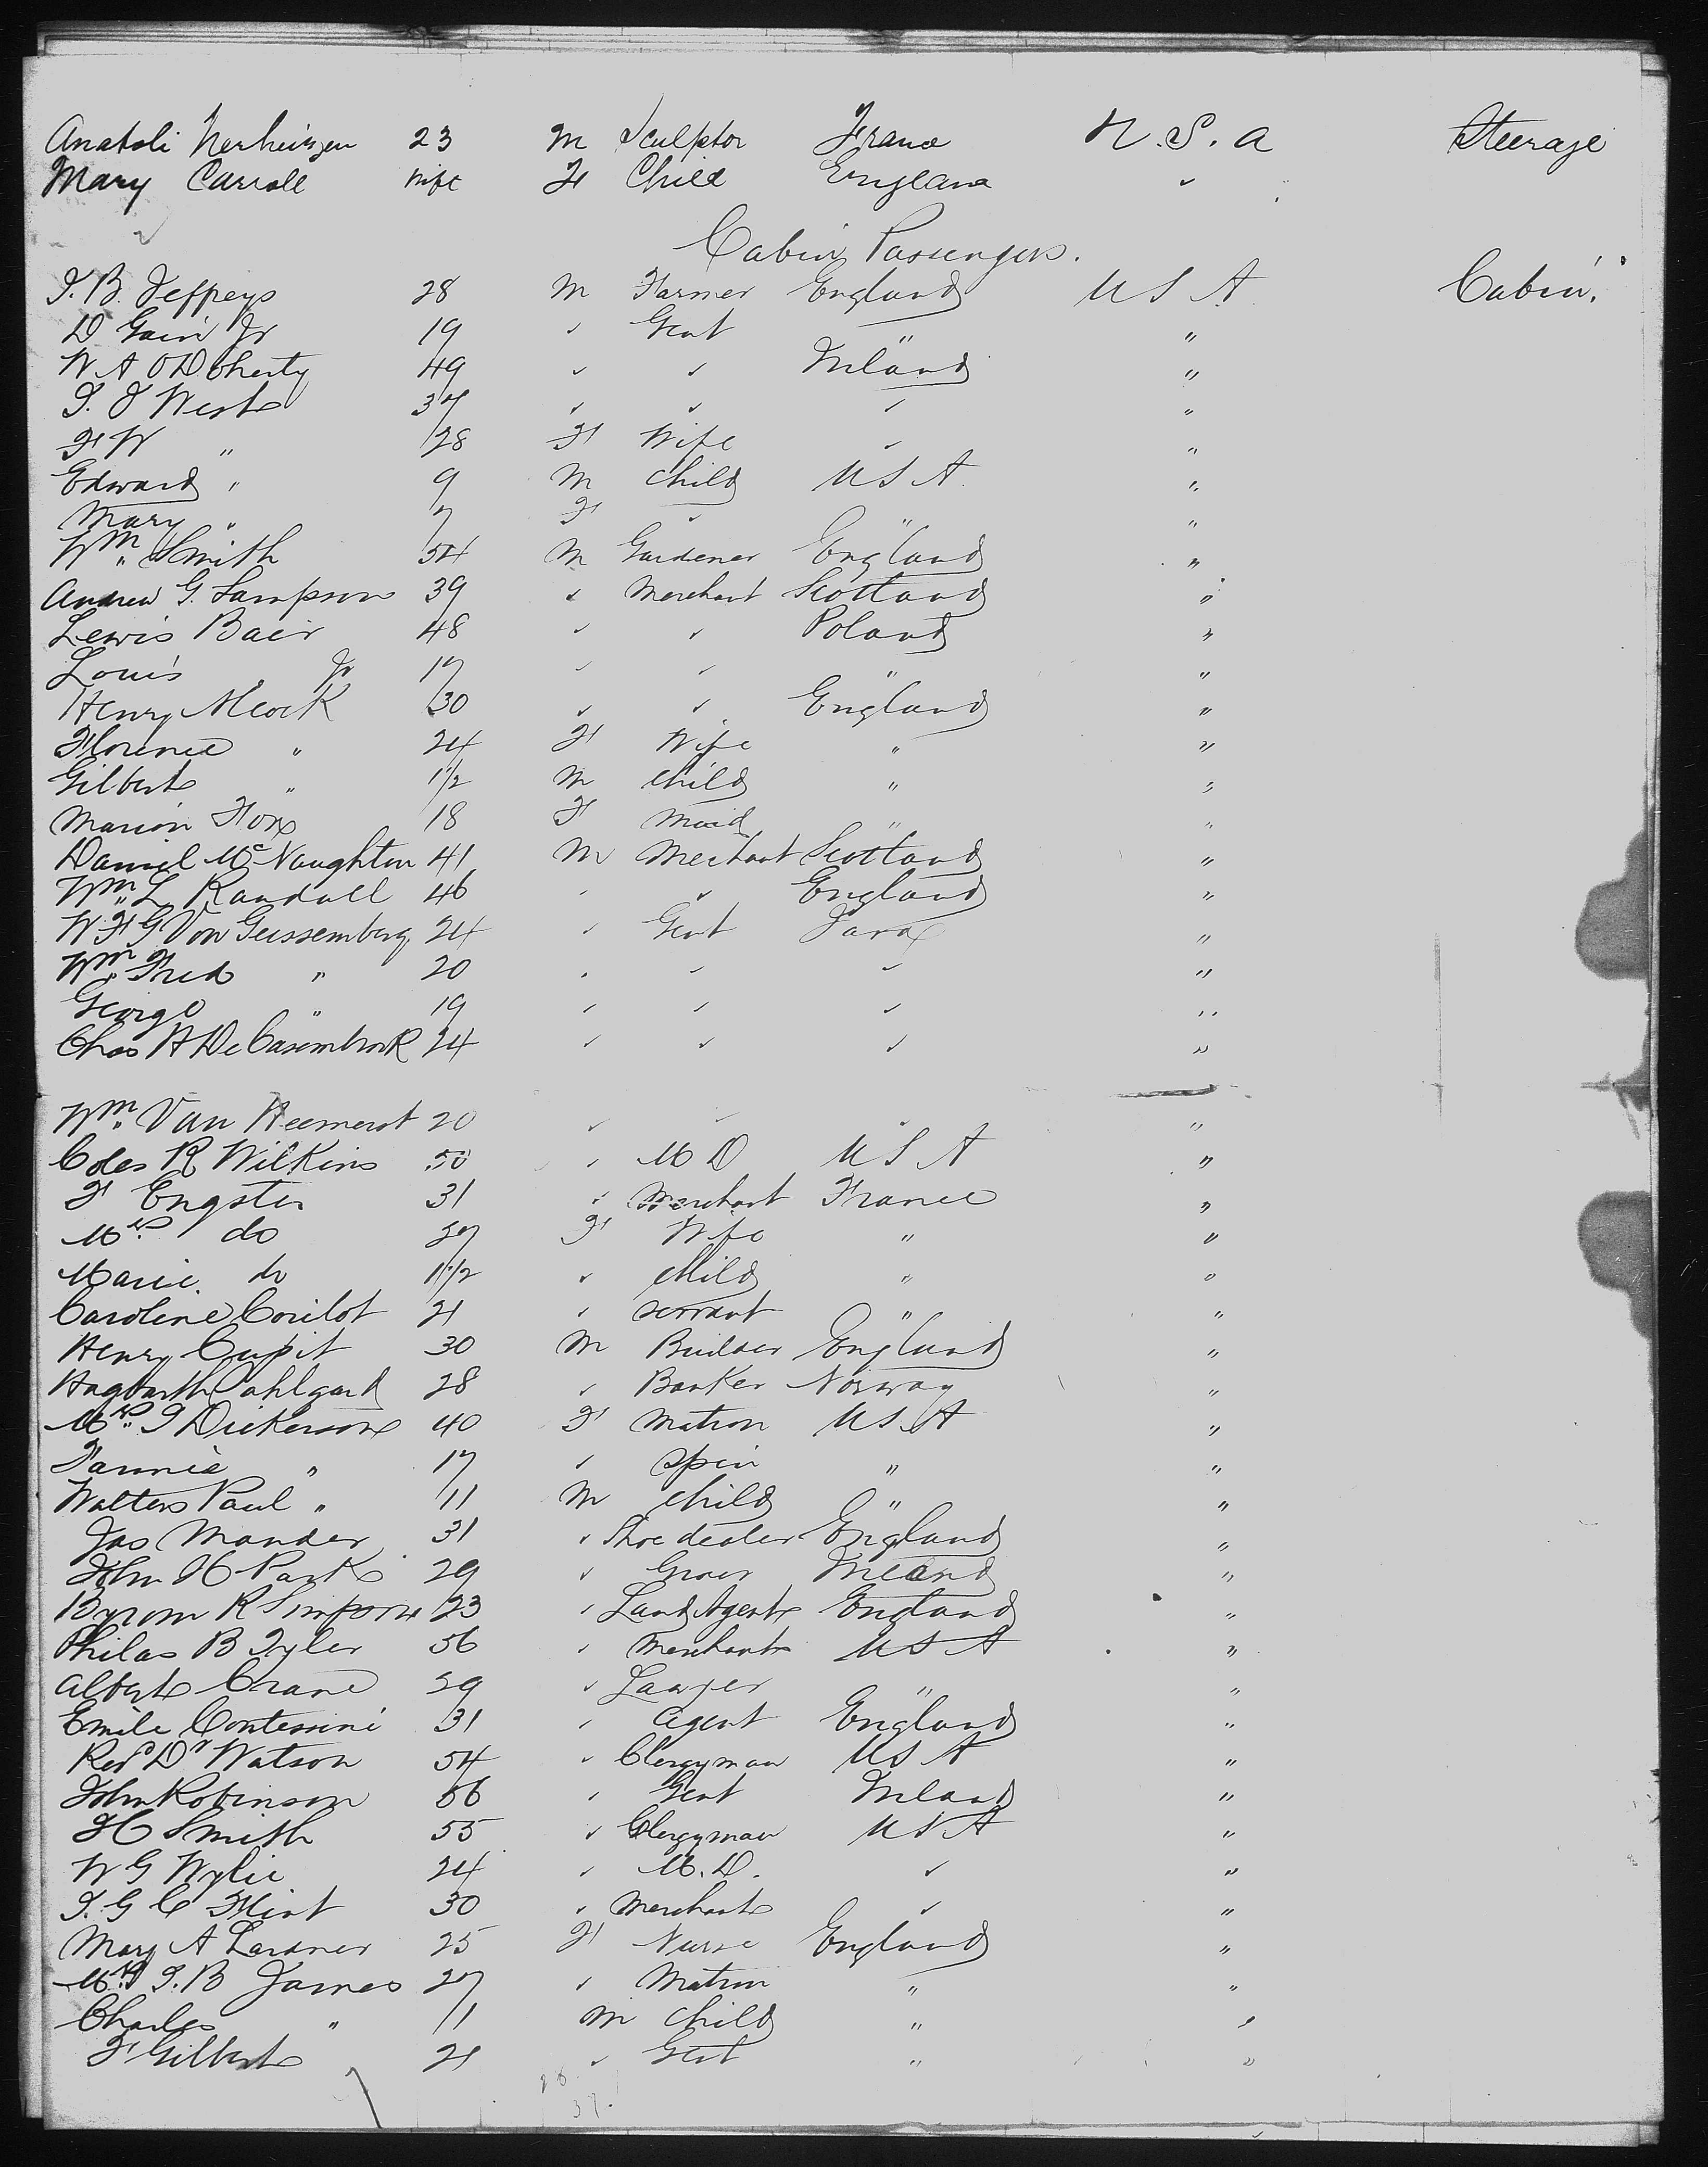 Anatoli 23 M Sculptor France U.S.A Steerage
Mary Carroll inft F Child England "
Cabin Passengers.
J. B. Jeffreys 28 M Farmer England U S A Cabin.
D Gain Jr 19 " Gent " "
W. A O'Doherty 49 " " Ireland "
J. J West 37 " " " "
F W " 28 F Wife " "
Edward " 9 M Child U S A. "
Mary " 7 F " " "
Wm Smith 54 M Gardener England "
Andrew G. Sampson 39 " Merchant Scotland "
Lewis Baer 48 " " Poland "
Louis Jr 17 " " " "
Henry Alcock 30 " " England "
Florence " 24 F Wife " "
Gilbert " 1 1/2 M Child " "
Marion Fox 18 F Maid " "
Daniel McNaughton 41 M Merchant Scotland "
Wm L Randall 46 " " England "
W F G Von Geissemberg 24 " Gent Java "
Wm Fred " 20 " " " "
George " 19 " " " "
Chas H De Casembrook 24 " " " "
Wm Van Heemerst 20 " " "
Coles R Wilkins 50 " M D U S A "
F Engster 31 " Merchant France "
Mrs do 27 F Wife " "
Marie do 1 1/2 " Child " "
Caroline 21 " servant " "
Henry Cupit 30 M Builder England "
Hagbarth Sahlgard 28 " Banker Norway "
Mrs J Dickerson 40 F Matron U S A "
Fannie " 17 " Spin " "
Walter Paul " 11 M Child " "
Jas Mander 31 " Shoe dealer England "
John H Park 29 " Grocer Ireland "
Byrom R Simpson 23 " Land Agent England "
Philas B Tyler 56 " Merchant U S A "
Albert Crane 29 " Lawyer " "
Emile Contessini 31 " Agent England "
Revd Dr Watson 54 " Clergyman U S A "
John Robinson 56 " Gent Ireland "
H Smith 55 " Clergyman U S A "
W G Wylie 24 " M.D. " "
J. G C Flint 30 " Merchant " "
Mary A Lardner 25 F Nurse England "
Mrs J. B James 27 " Matron " "
Charles " 11 M Child " "
F Gilbert 21 " Gent " "
37.